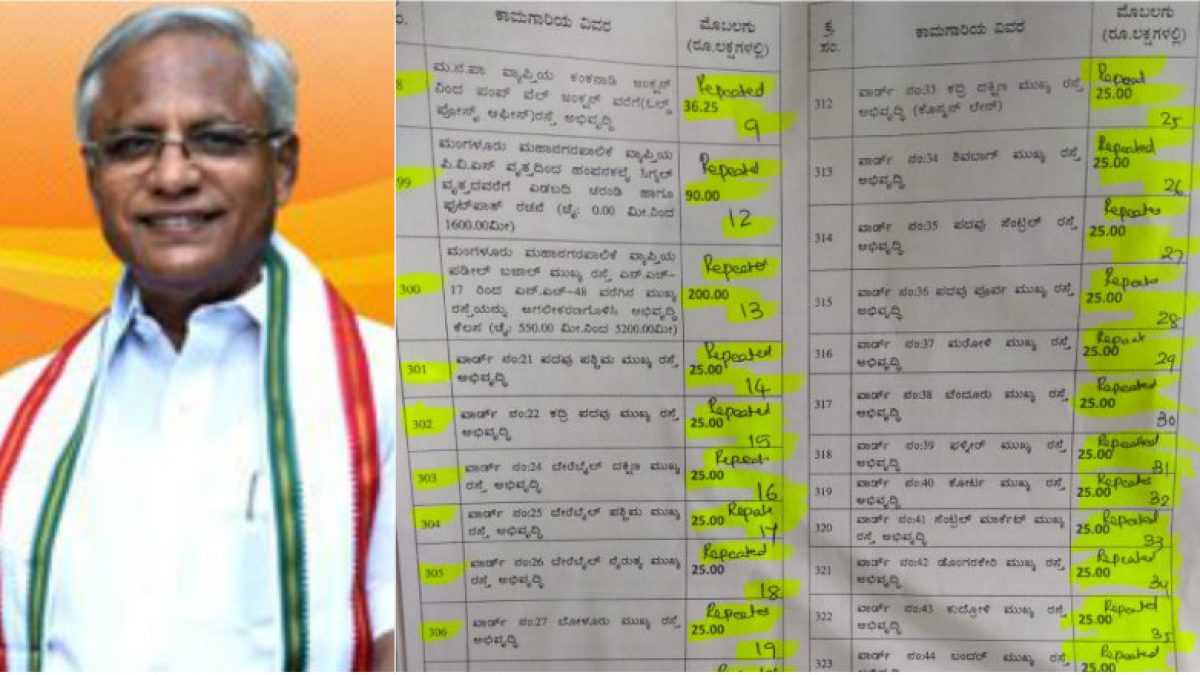 ಸಂ.
ಕಾಮಗಾರಿಯ ವಿವರ
ಮೊಬಲಗು
(ರೂ.ಲಕ್ಷಗಳಲ್ಲಿ)
8
ಮ.ನ.ಪಾ ವ್ಯಾಪ್ತಿಯ ಕಂಕನಾಡಿ ಜಂಕ್ಷನ್
ನಿಂದ ಪಂಪ್ ವೆಲ್ ಜಂಕ್ಷನ್ ವರೆಗೆ(ಓಲ್ಡ್
ಪೋಸ್ಟ್ ಆಫೀಸ್)ರಸ್ತೆ ಅಭಿವೃದ್ಧಿ
Repeated
36.25
9
99
ಮಂಗಳೂರು ಮಹಾನಗರಪಾಲಿಕೆ ವ್ಯಾಪ್ತಿಯ
ಪಿ.ವಿ.ಎಸ್ ವೃತ್ತದಿಂದ ಹಂಪನಕಟ್ಟೆ ಸಿಗ್ನಲ್
ವೃತ್ತದವರೆಗೆ ಎಡಬದಿ ಚರಂಡಿ ಹಾಗೂ
ಫುಟ್‌ಪಾತ್ ರಚನೆ (ಚೈ: 0.00 ಮೀ.ನಿಂದ
1600.00ಮೀ)
Repeated
90.00
12
300
ಮಂಗಳೂರು ಮಹಾನಗರಪಾಲಿಕೆ ವ್ಯಾಪ್ತಿಯ
ಪಡೀಲ್ ಬಜಾಲ್ ಮುಖ್ಯ ರಸ್ತೆ ಎನ್.ಎಚ್-
17 ರಿಂದ ಎನ್.ಎಚ್-48 ವರೆಗಿನ ಮುಖ್ಯ
ರಸ್ತೆಯನ್ನು ಅಗಲೀಕರಣಗೊಳಿಸಿ ಅಭಿವೃದ್ಧಿ
ಕೆಲಸ (ಚೈ: 550.00 ಮೀ.ನಿಂದ 5200.00ಮೀ)
Repeated
200.00
13
301
ವಾರ್ಡ್ ನಂ:21 ಪದವು ಪಶ್ಚಿಮ ಮುಖ್ಯ ರಸ್ತೆ
ಅಭಿವೃದ್ಧಿ
Repeated
25.00
14
302
ವಾರ್ಡ್ ನಂ:22 ಕದ್ರಿ ಪದವು ಮುಖ್ಯ ರಸ್ತೆ
ಅಭಿವೃದ್ಧಿ
Repeated
25.00
15
303
ವಾರ್ಡ್ ನಂ:24 ದೇರೆಬೈಲ್ ದಕ್ಷಿಣ ಮುಖ್ಯ
ರಸ್ತೆ ಅಭಿವೃದ್ಧಿ
25.00
16
304
ವಾರ್ಡ್ ನಂ:25 ದೇರೆಬೈಲ್ ಪಶ್ಚಿಮ ಮುಖ್ಯ
ರಸ್ತೆ ಅಭಿವೃದ್ಧಿ
25.00
17
305
ವಾರ್ಡ್ ನಂ:26 ದೇರೆಬೈಲ್ ನೈರುತ್ಯ ಮುಖ್ಯ
ರಸ್ತೆ ಅಭಿವೃದ್ಧಿ
Repeated
25.00
18
306
ವಾರ್ಡ್ ನಂ:27 ಬೋಳೂರು ಮುಖ್ಯ ರಸ್ತೆ
ಅಭಿವೃದ್ಧಿ
Repeated
25.00
19
Repeated
ಕ್ರ.
ಸಂ.
ಕಾಮಗಾರಿಯ ವಿವರ
ಮೊಬಲಗು
(ರೂ.ಲಕ್ಷಗಳಲ್ಲಿ)
312
ವಾರ್ಡ್ ನಂ:33 ಕದ್ರಿ ದಕ್ಷಿಣ ಮುಖ್ಯ ರಸ್ತೆ
ಅಭಿವೃದ್ಧಿ (ಕೊಸ್ಮನ್ ಲೇನ್)
Repeat
25.00
25
313
ವಾರ್ಡ್ ನಂ:34 ಶಿವಬಾಗ್ ಮುಖ್ಯ ರಸ್ತೆ
ಅಭಿವೃದ್ಧಿ
Repeated
25.00
26
314
ವಾರ್ಡ್ ನಂ:35 ಪದವು ಸೆಂಟ್ರಲ್ ರಸ್ತೆ
ಅಭಿವೃದ್ಧಿ
Repeated
25.00
27
315
ವಾರ್ಡ್ ನಂ:36 ಪದವು ಪೂರ್ವ ಮುಖ್ಯ ರಸ್ತೆ
ಅಭಿವೃದ್ಧಿ
25.00
28
316
ವಾರ್ಡ್ ನಂ:37 ಮರೋಳಿ ಮುಖ್ಯ ರಸ್ತೆ
ಅಭಿವೃದ್ಧಿ
25.00
29
317
ವಾರ್ಡ್ ನಂ:38 ಬೆಂದೂರು ಮುಖ್ಯ ರಸ್ತೆ
ಅಭಿವೃದ್ಧಿ
Repeated
25.00
30
318
ವಾರ್ಡ್ ನಂ:39 ಫಳ್ನೀರ್ ಮುಖ್ಯ ರಸ್ತೆ
ಅಭಿವೃದ್ಧಿ
Repeated
25.00
31
319
ವಾರ್ಡ್ ನಂ:40 ಕೋರ್ಟ್ ಮುಖ್ಯ ರಸ್ತೆ
ಅಭಿವೃದ್ಧಿ
Repeated
25.00
32
320
ವಾರ್ಡ್ ನಂ:41 ಸೆಂಟ್ರಲ್ ಮಾರ್ಕೆಟ್ ಮುಖ್ಯ
ರಸ್ತೆ ಅಭಿವೃದ್ಧಿ
Repeated
25.00
33
321
ವಾರ್ಡ್ ನಂ:42 ಡೊಂಗರಕೇರಿ ಮುಖ್ಯ ರಸ್ತೆ
ಅಭಿವೃದ್ಧಿ
Repeated
25.00
34
322
ವಾರ್ಡ್ ನಂ:43 ಕುದ್ರೋಳಿ ಮುಖ್ಯ ರಸ್ತೆ
ಅಭಿವೃದ್ಧಿ
Repeated
25.00
35
323
ವಾರ್ಡ್ ನಂ:44 ಬಂದರ್ ಮುಖ್ಯ ರಸ್ತೆ
ಅಭಿವೃದ್ಧಿ
Repeated
25.00